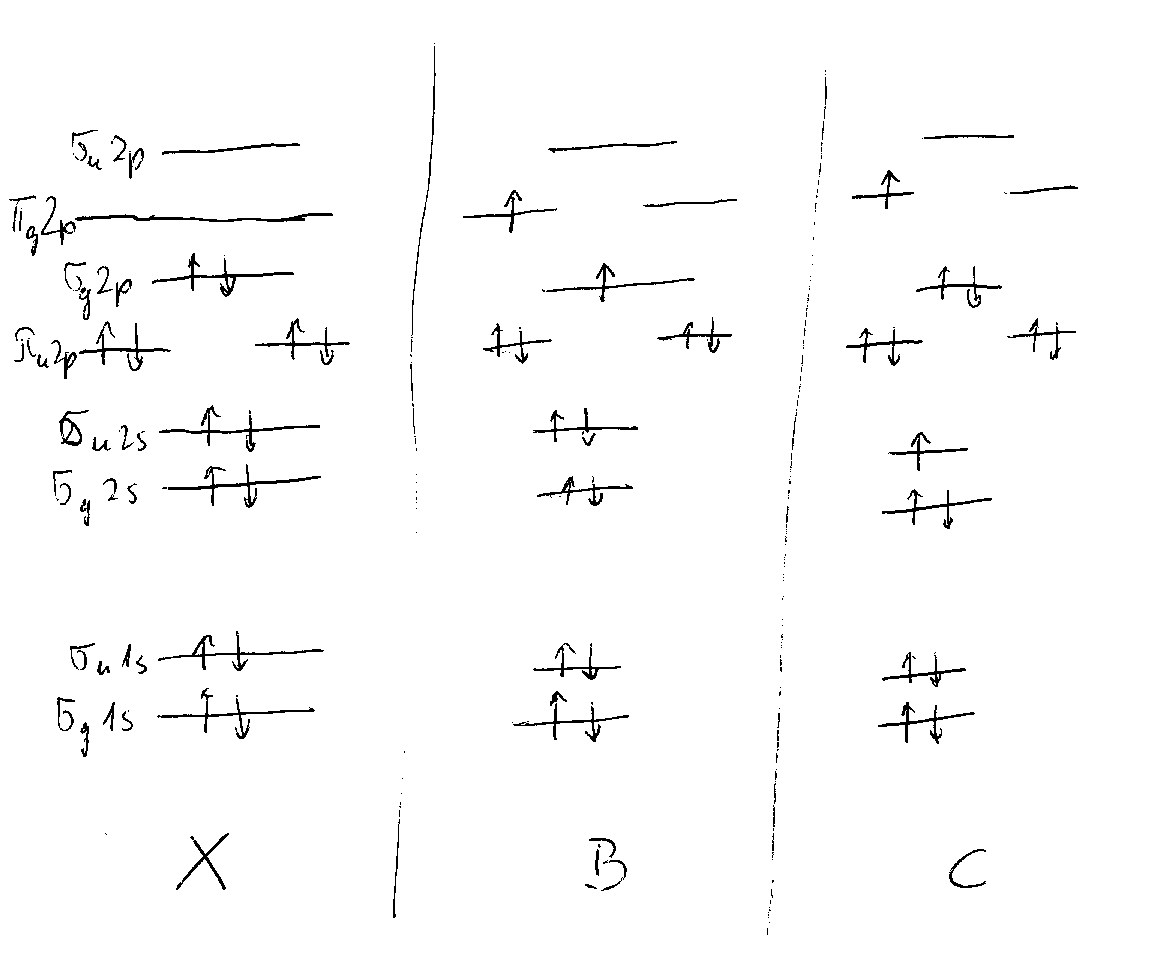 σu2p
πg2p
σg2p
πu2p
σu2s
σg2s
σu1s
σg1s
X B C